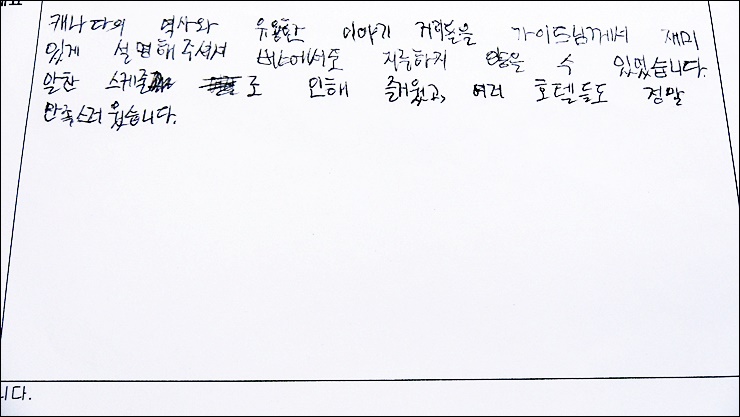 캐나다의 역사와 유용한 이야기 거리들을 가이드님께서 재미
있게 설명해주셔서 버스에서도 지루하지 않을 수 있었습니다.
알찬 스케줄로 인해 즐거웠고, 여러 호텔들도 정말
만족스러웠습니다.
니다.